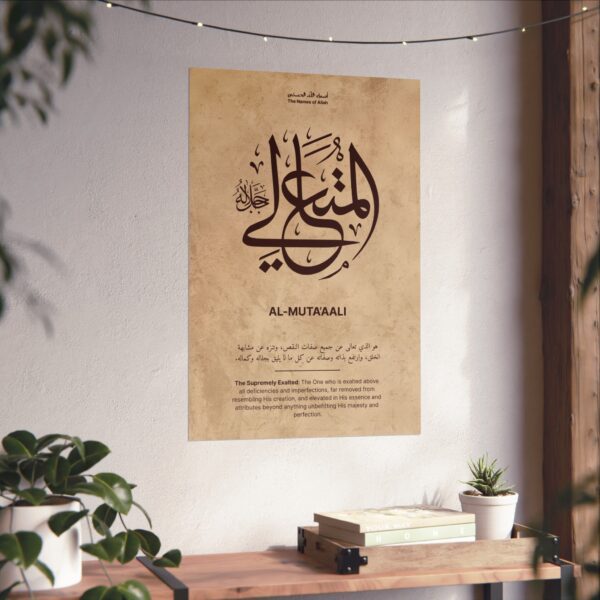 أسماء الله الحسنى
The Names of Allah
المتعالي
جل جلاله
AL-MUTA'AALI
هو الذي تعالى عن جميع صفات النقص، وتنزه عن مشابهة
الخلق، وارتفع بذاته وصفاته عن كل ما لا يليق بجلاله وكماله.
The Supremely Exalted: The One who is exalted above
all deficiencies and imperfections, far removed from
resembling His creation, and elevated in His essence and
attributes beyond anything unbefitting His majesty and
perfection.
HOME